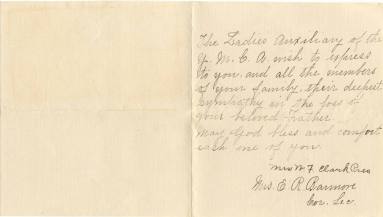 The Ladies Auxiliary of the
Y. M. C. A. wish to express
to you, and all the members
of your family, their deepest
sympathy in the loss of
your beloved Father.
May God bless and comfort
each one of you.
Mrs W. F. Clark Pres
Mrs. E. R. Barmore
Cor. Sec.